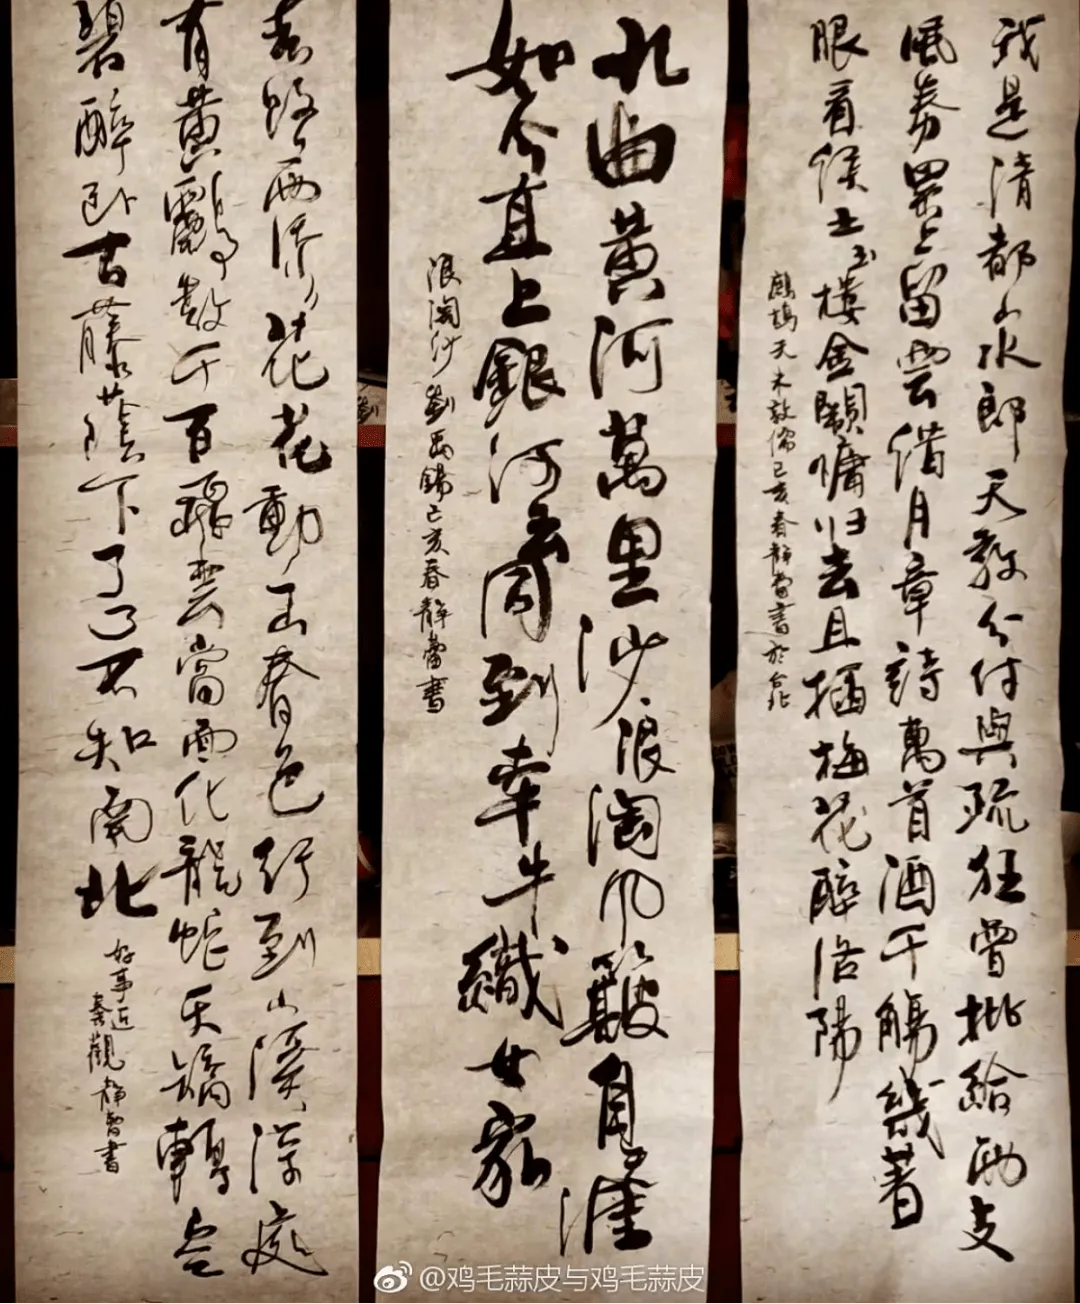 我是清都山水郎天教分付與疏狂曾批給雨支
風券累上留雲借月章詩萬首酒千觴幾著
眼看侯王玉樓金闕慵归去且插梅花醉洛陽
鷓鴣天朱敦儒己亥春靜雷書於台北
九曲黄河萬里沙浪淘风簸自天涯
如今直上銀河去同到牽牛織女家
浪淘沙劉禹錫己亥春靜雷書
春路雨添花花動一山春色行到小溪深處
有黄鸝數千百飛雲當面化龍蛇夭矯轉空
碧醉卧古藤蔭下了了不知南北
好事近
秦觀靜雷書
@鸡毛蒜皮与鸡毛蒜皮